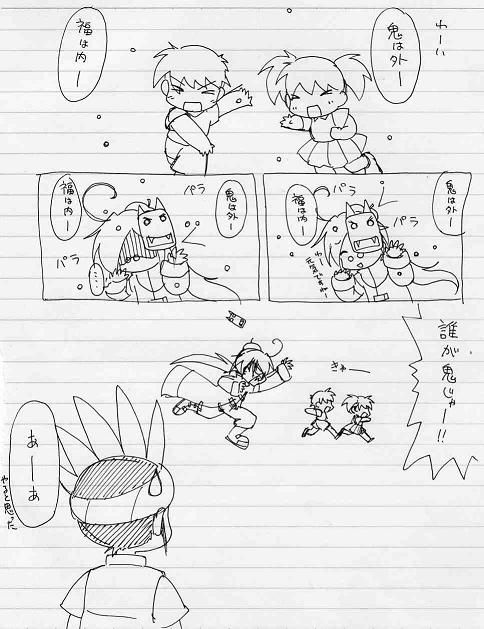 わーい
鬼は外ー
福は内ー
鬼は外ー
パラ
パラ
福は内
わー
元気ですねー
鬼は外ー
パラ
福は内ー
パラ
……
誰が鬼じゃー!!
きゃー
あーあ
やると思った